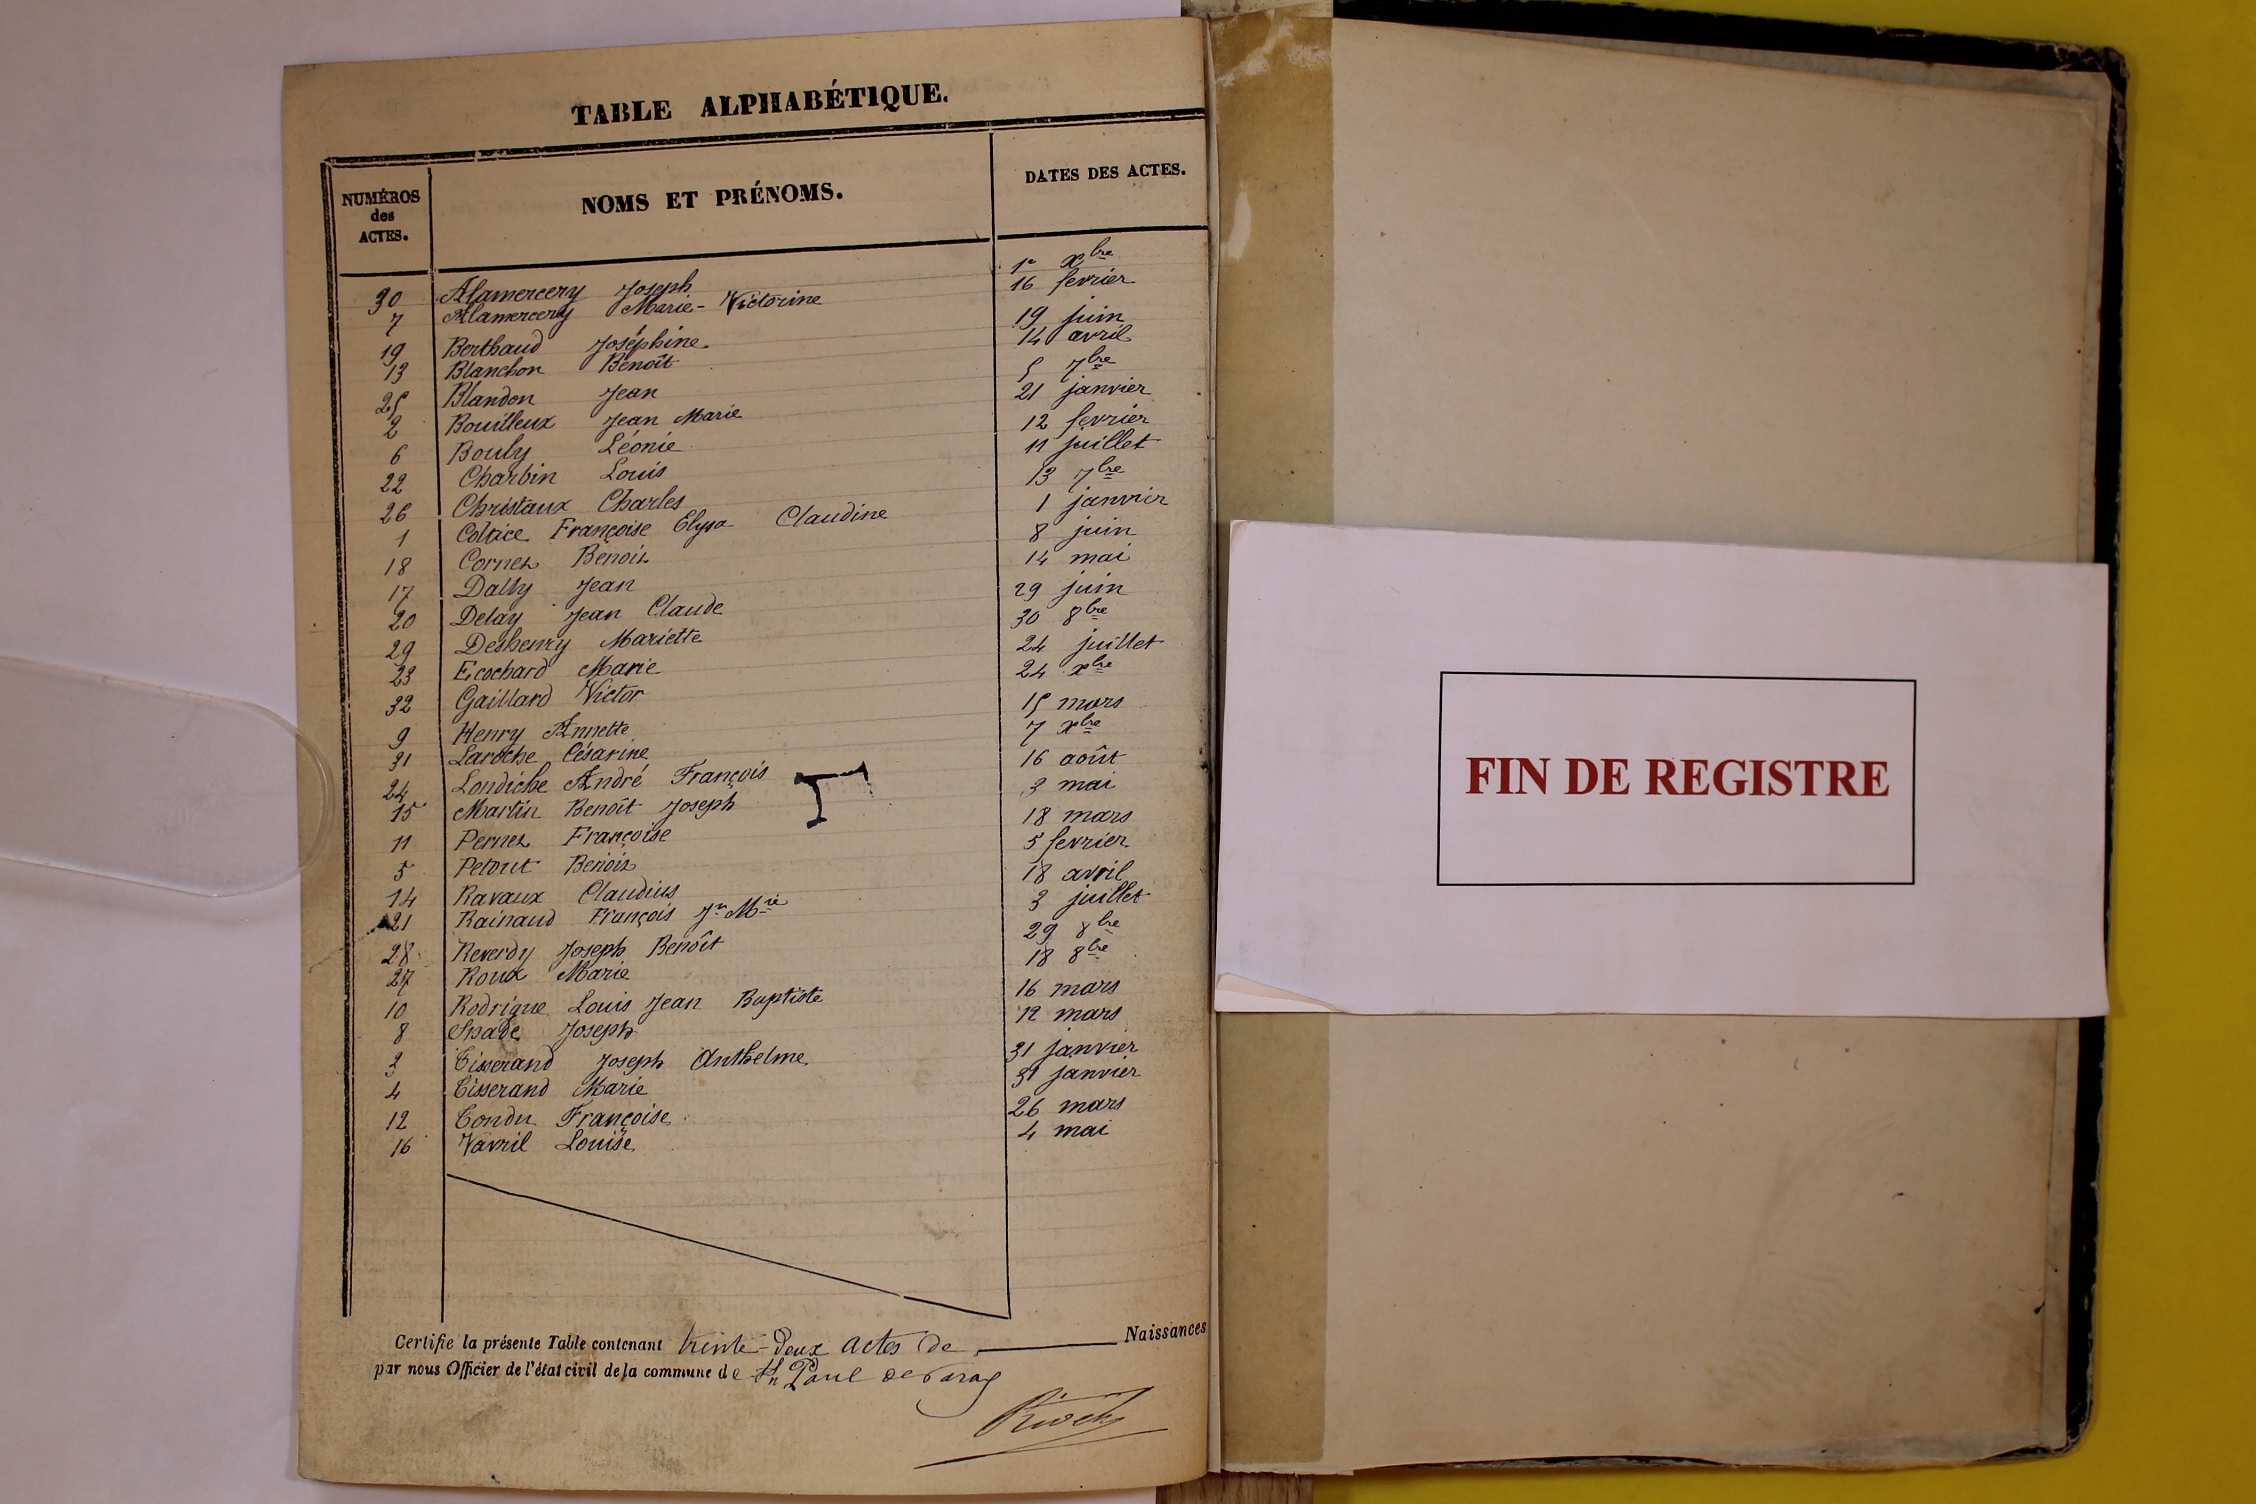 TABLE ALPHABÉTIQUE.
NUMÉROS des ACTES. NOMS ET PRÉNOMS. DATES DES ACTES.
30 Alamercery Joseph 1er Xbre
7 Alamercery Marie-Victorine 16 fevrier
19 Berthaud Joséphine 19 juin
13 Blanchon Benoît 14 avril
25 Blandon Jean 5 7bre
2 Bouilleux Jean Marie 21 janvier
6 Bouly Léonie 12 fevrier
22 Charbin Louis 11 juillet
26 Christaux Charles 13 7bre
1 Coltice Françoise Elysa Claudine 1 janvier
18 Cornet Benoit 8 juin
17 Dally Jean 14 mai
20 Delay Jean Claude 29 juin
29 Deshenry Mariette 30 8bre
23 Ecochard Marie 24 juillet
32 Gaillard Victor 24 Xbre
9 Henry Annette 15 mars
31 Laroche Césarine 7 Xbre
24 Londiche André François 16 août
15 Martin Benoît Joseph 3 mai
11 Pernet Françoise 18 mars
5 Petout Benoit 5 fevrier
14 Ravaux Claudius 18 avril
21 Rainaud François Jn Mie 3 juillet
28 Reverdy Joseph Benoît 29 8bre
27 Roux Marie 18 8bre
10 Rodrigue Louis Jean Baptiste 16 mars
8 Joseph 12 mars
3 Tisserand Joseph Anthelme 31 janvier
4 Tisserand Marie 31 janvier
12 Tondu Françoise 26 mars
16 Vavril Louise 4 mai
Certifie la présente Table contenant trente-deux actes de Naissances
par nous Officier de l'état civil de la commune de St Paul de Varax
FIN DE REGISTRE